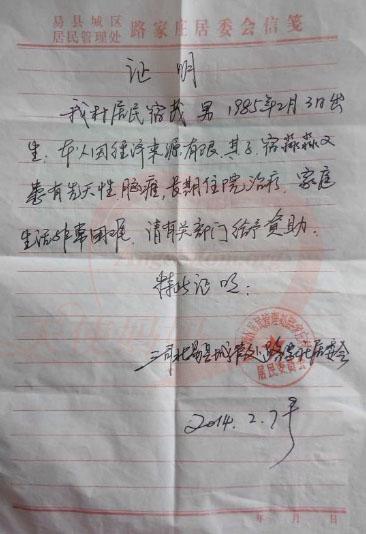 易县城区
居民管理处 路家庄居委会信笺
证明
我村居民宿武 男 1985年2月3日出
生，本人因经济来源有限，其子宿淼淼又
患有先天性脑瘫，长期住院治疗，家庭
生活非常困难，请有关部门给予资助。
特此证明：
居民委员会
2014.2.7号
年 月 日